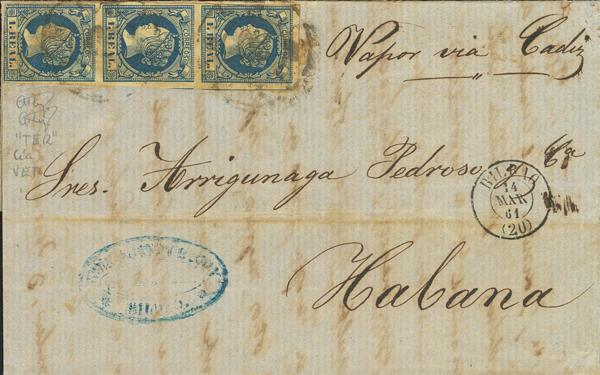 1. REAL. 1. REAL. 1. REAL.
CORREOS CORREOS CORREOS
Vapor via Cadiz
"TER"
Cía
Sres. Arrigunaga Pedroso Cª
BILBAO
14
MAR
61
(20)
Habana
BILBAO